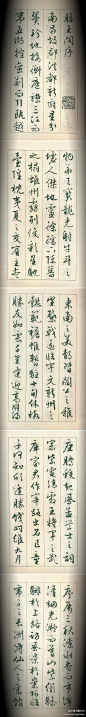 滕王閣序
南昌故郡洪都新府星分
翼軫地接衡廬襟三江而
帶五湖控蠻荊而引甌越
物華天寶龍光射牛斗之
墟人傑地靈徐孺下陳蕃
之榻雄州霧列俊彩星馳
臺隍枕夷夏之交賓主盡
東南之美都督閻公之雅
望棨戟遙臨宇文新州之
懿範襜帷暫駐十旬休暇
勝友如雲千里逢迎高朋滿
座騰蛟起鳳孟學士之詞
宗紫電清霜王將軍之武
庫家君作宰路出名區童
子何知躬逢勝餞時維九月
序屬三秋潦水盡而寒潭
清煙光凝而暮山紫儼驂
騑於上路訪風景於崇阿臨
帝子之長洲得仙人之舊館